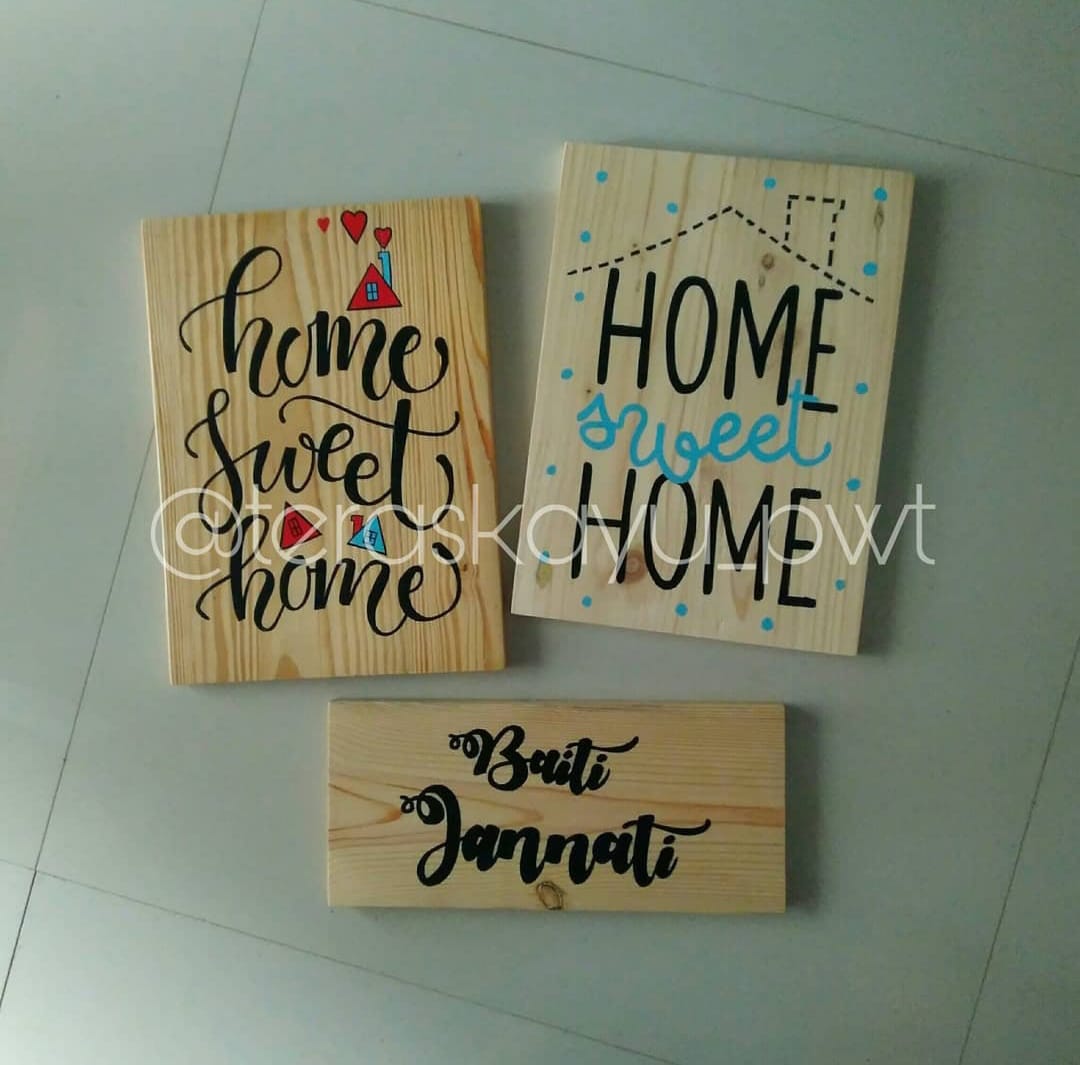 home
sweet
home
HOME
sweet
HOME
@teraskayu_pwt
Baiti
Jannati